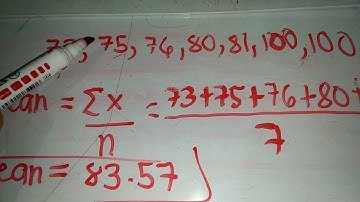 75, 76, 80, 81, 100, 100
ean = Σx / n = 73+75+76+80+ / 7
ean = 83.57